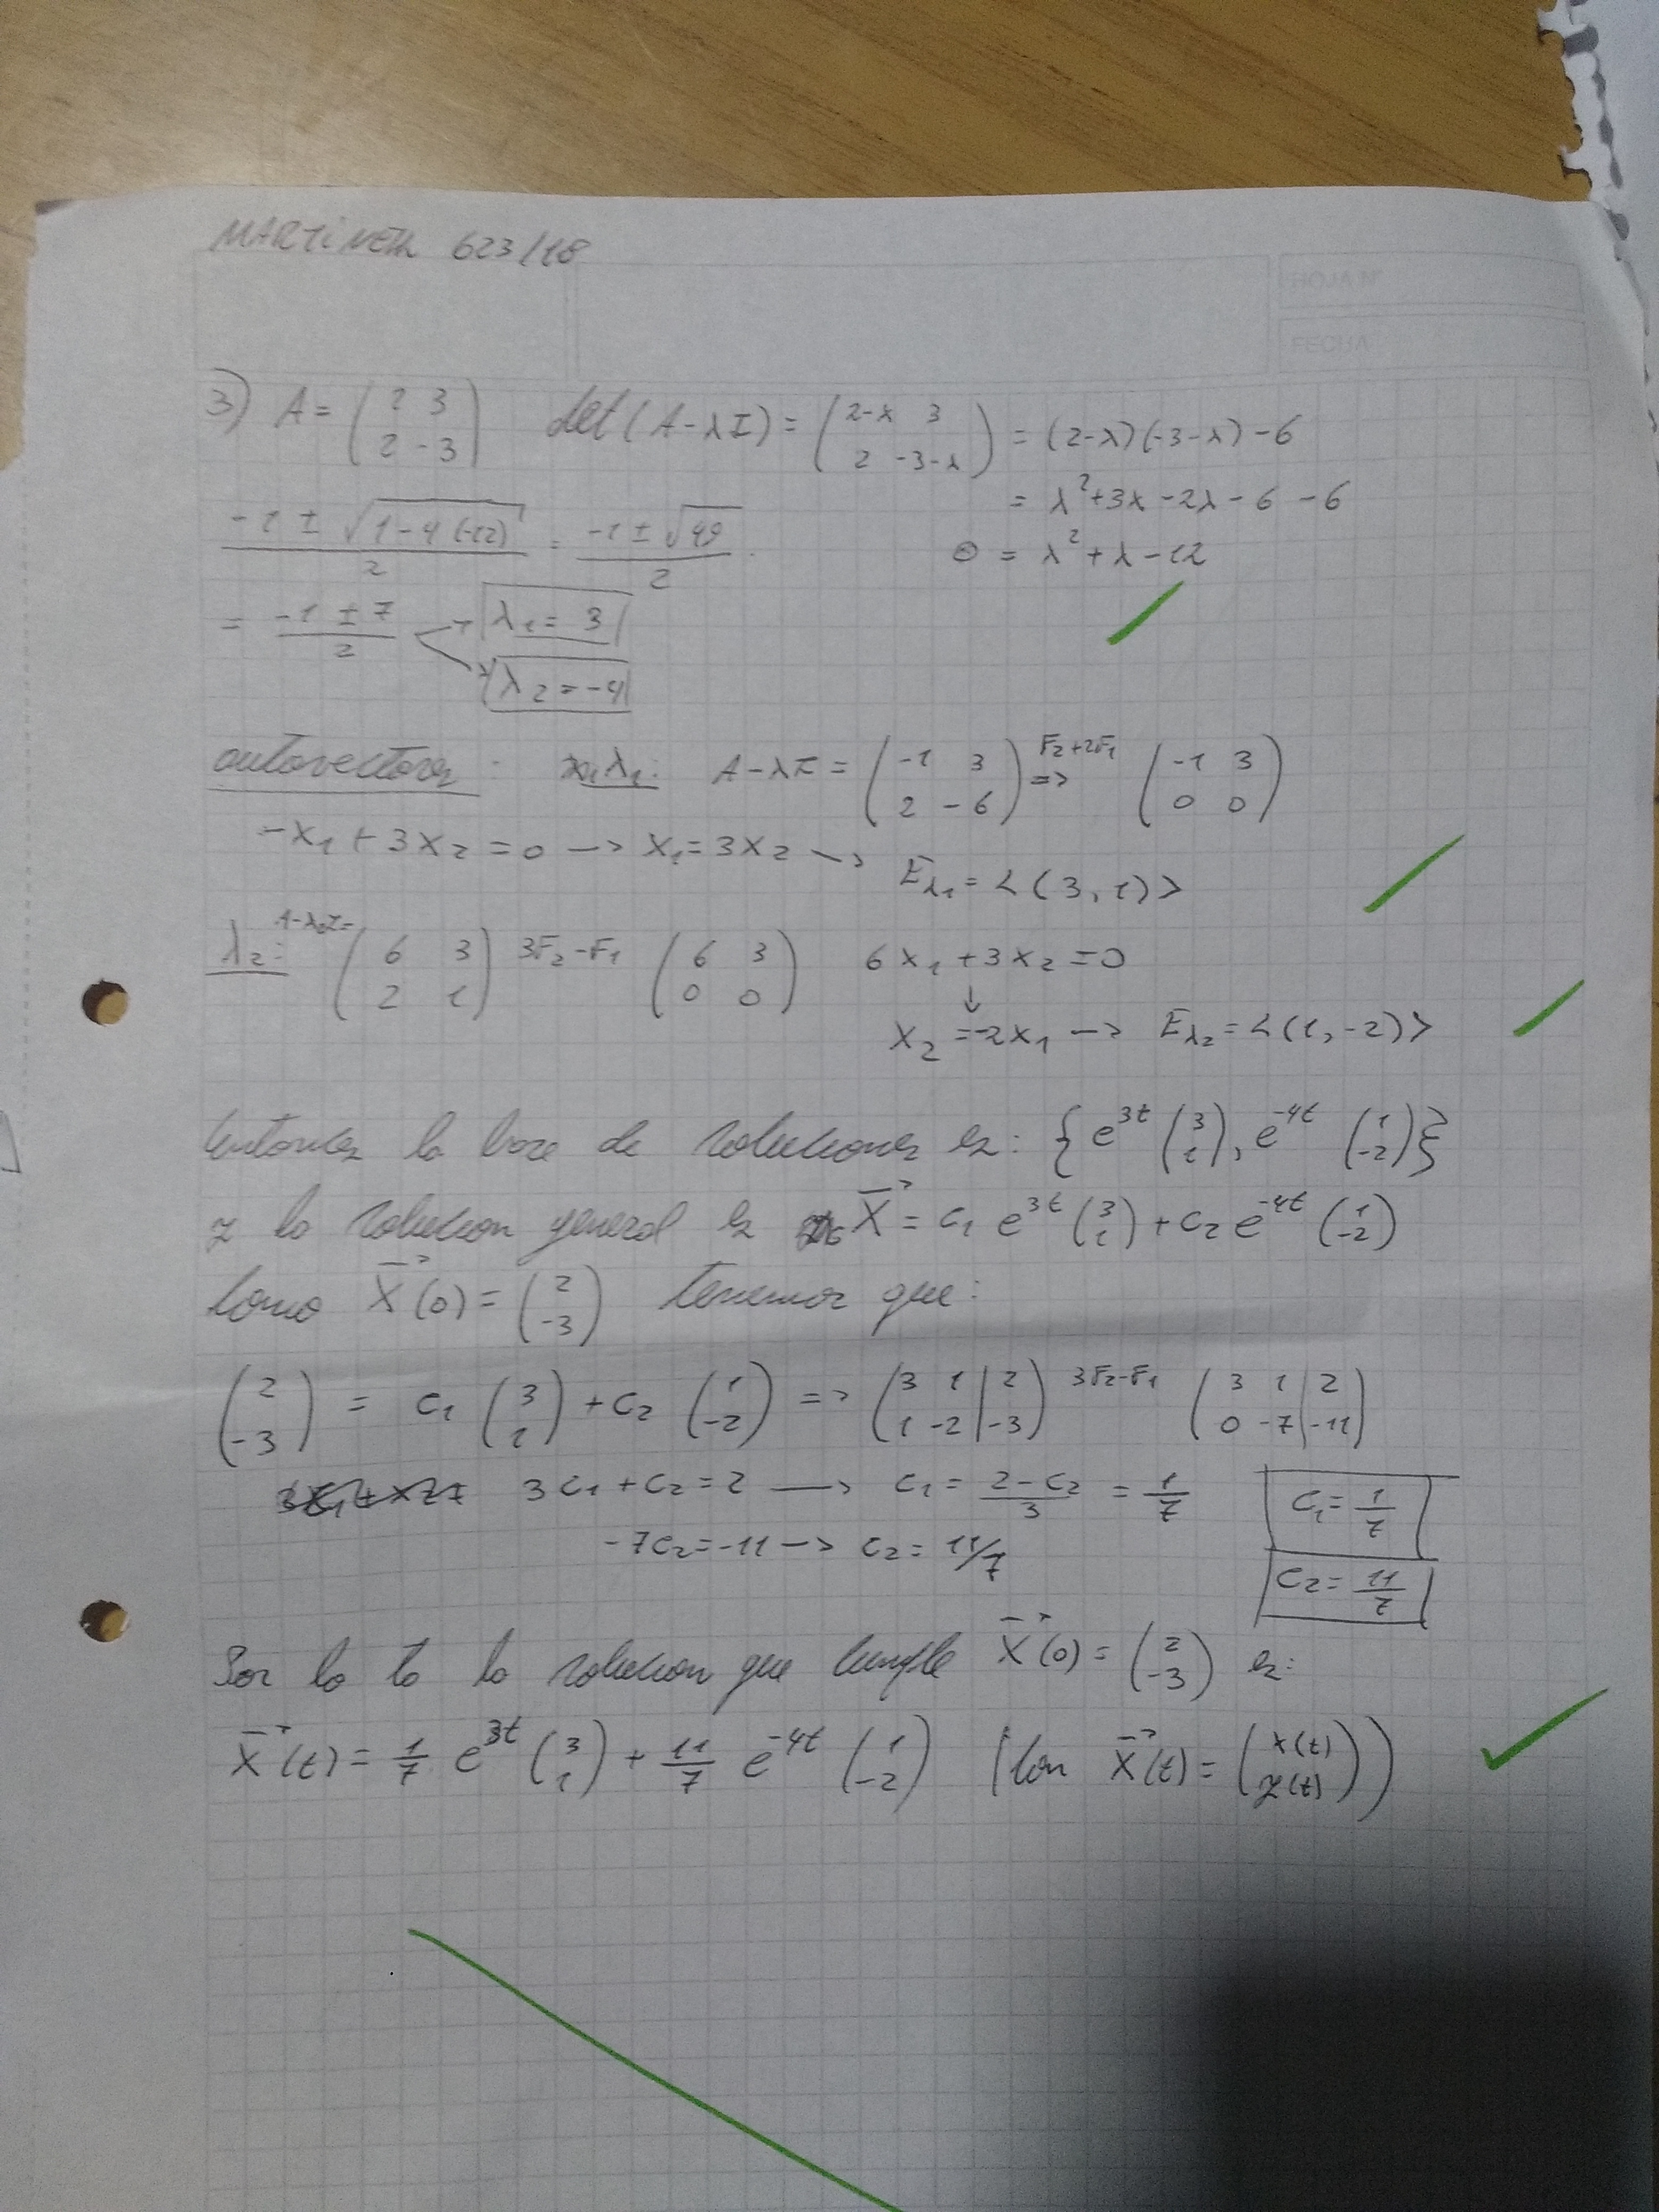 MARTINETZ 623/18
HOJA Nº
FECHA
3) A = (2 3; 2 -3) det(A-λI) = (2-λ 3; 2 -3-λ) = (2-λ)(-3-λ) - 6
= λ² + 3λ - 2λ - 6 - 6
0 = λ² + λ - 12
(-1 ± √(1-4(-12)))/2 = (-1 ± √49)/2
= (-1 ± 7)/2 → λ₁ = 3
λ₂ = -4
autovectores: λ₁: A-λI = (-1 3; 2 -6) F₂+2F₁ => (-1 3; 0 0)
-x₁ + 3x₂ = 0 → x₁ = 3x₂ → Eλ₁ = <(3, 1)>
λ₂: A-λ₂I = (6 3; 2 1) 3F₂-F₁ (6 3; 0 0) 6x₁ + 3x₂ = 0
↓
x₂ = -2x₁ → Eλ₂ = <(1, -2)>
Entonces la base de soluciones es: {e^3t (3; 1), e^-4t (1; -2)}
y la solucion general es X⃗ = c₁ e^3t (3; 1) + c₂ e^-4t (1; -2)
Como X⃗(0) = (2; -3) tenemos que:
(2; -3) = c₁ (3; 1) + c₂ (1; -2) => (3 1 | 2; 1 -2 | -3) 3F₂-F₁ (3 1 | 2; 0 -7 | -11)
3c₁ + c₂ = 2 → c₁ = (2-c₂)/3 = 1/7 c₁ = 1/7
-7c₂ = -11 → c₂ = 11/7 c₂ = 11/7
Por lo to la solucion que cumple X⃗(0) = (2; -3) es:
X⃗(t) = 1/7 e^3t (3; 1) + 11/7 e^-4t (1; -2) (Con X⃗(t) = (x(t); y(t)))